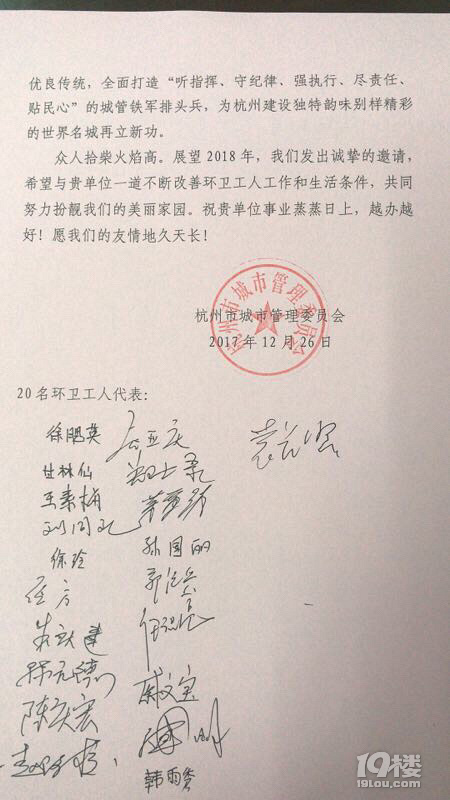 优良传统，全面打造“听指挥、守纪律、强执行、尽责任、
贴民心”的城管铁军排头兵，为杭州建设独特韵味别样精彩
的世界名城再立新功。
众人拾柴火焰高。展望 2018 年，我们发出诚挚的邀请，
希望与贵单位一道不断改善环卫工人工作和生活条件，共同
努力扮靓我们的美丽家园。祝贵单位事业蒸蒸日上，越办越
好！愿我们的友情地久天长！
杭州市城市管理委员会
杭州市城市管理委员会
2017 年 12 月 26 日
20 名环卫工人代表：
甘林仙
王素梅
徐玲
孙国丽
任方
陈庆宏
戚文宝
19楼
19lou.com